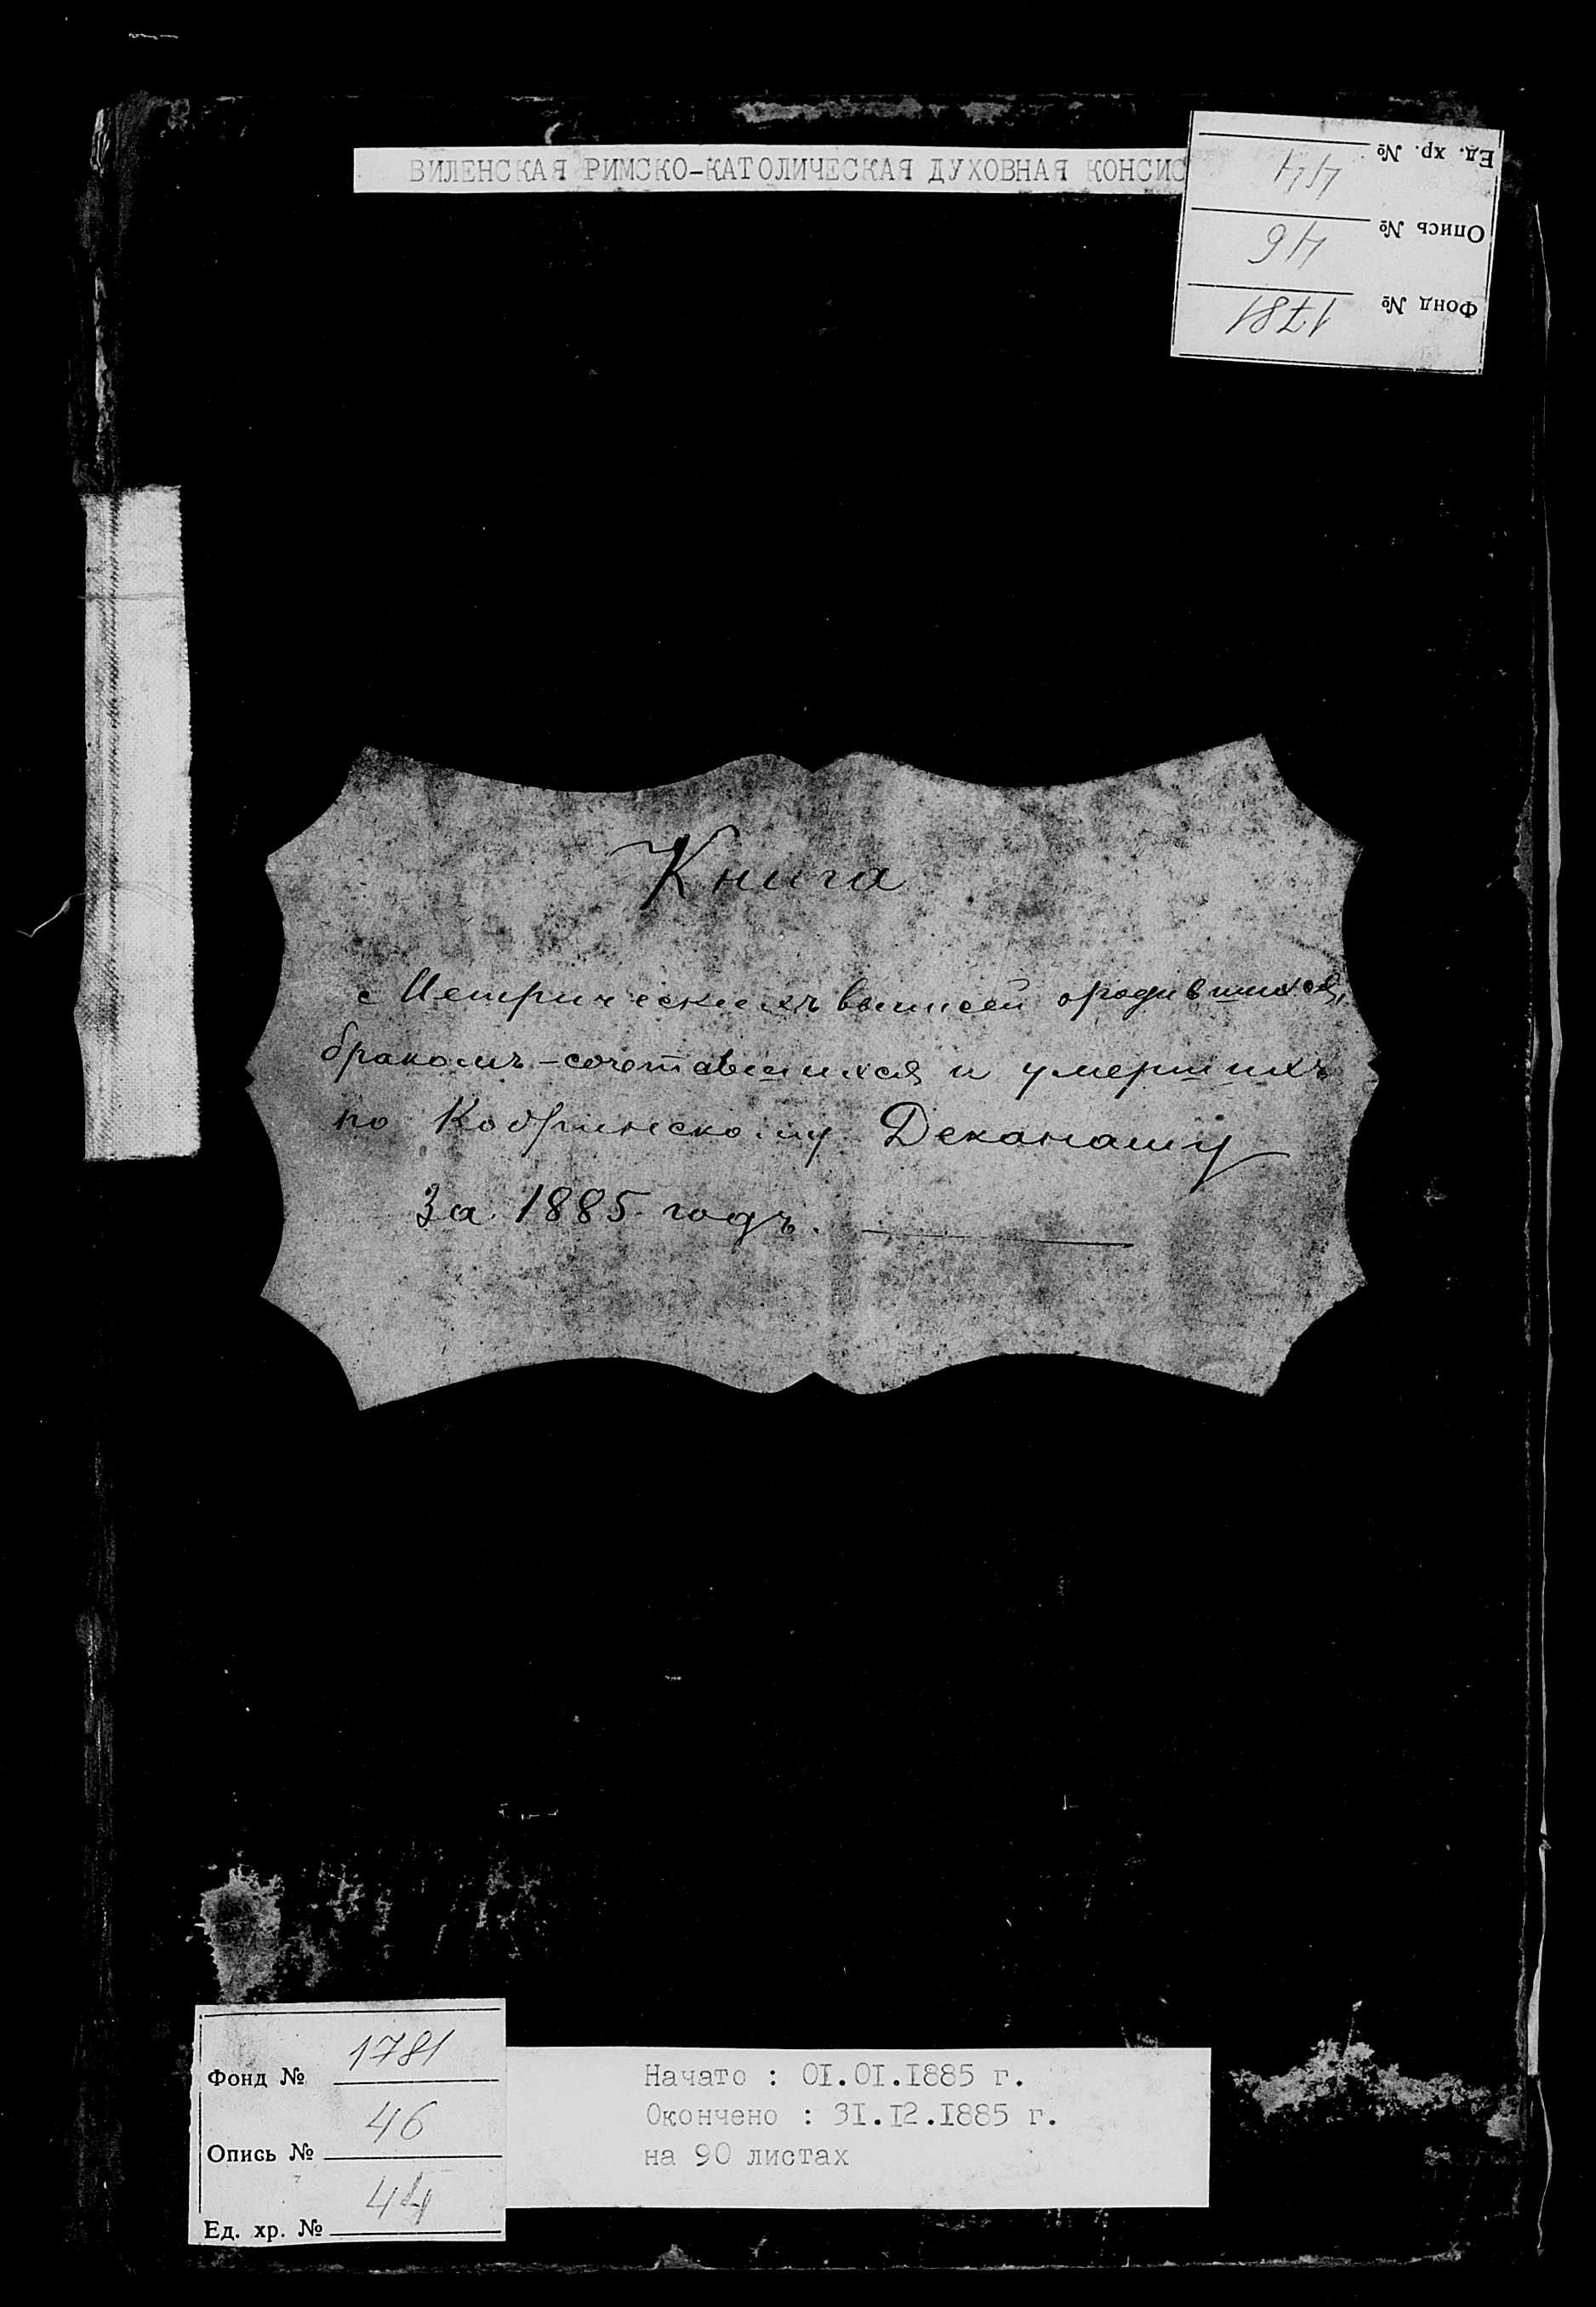 ВИЛЕНСКАЯ РИМСКО-КАТОЛИЧЕСКАЯ ДУХОВНАЯ КОНСИС
Фонд № 1781
Опись № 46
Ед. хр. № 44
Книга
с Метрическихъ выписей о родившихся,
бракомъ-сочетавшихся и умершихъ
по Кобринскому Деканату
За 1885 годъ.
Фонд № 1781
Опись № 46
Ед. хр. № 44
Начато : 01.01.1885 г.
Окончено : 31.12.1885 г.
на 90 листах